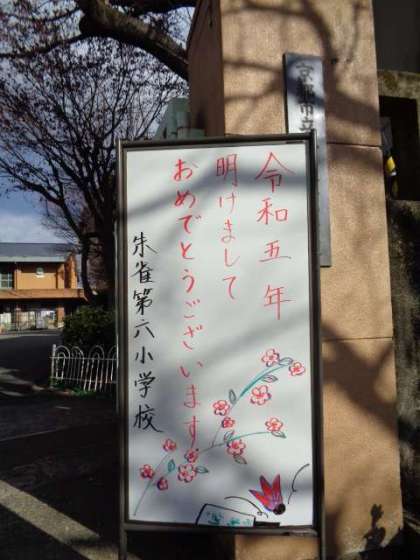 京都市立
令和五年
明けまして
おめでとうございます。
朱雀第六小学校